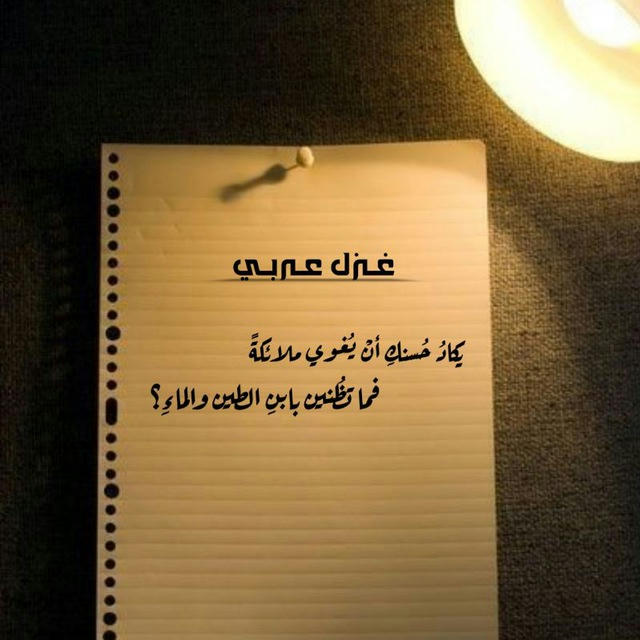 غزل عربي
يكادُ حُسنكِ أنْ يُغوي ملائكةً
فما تظُنين بابنِ الطين والماءِ؟